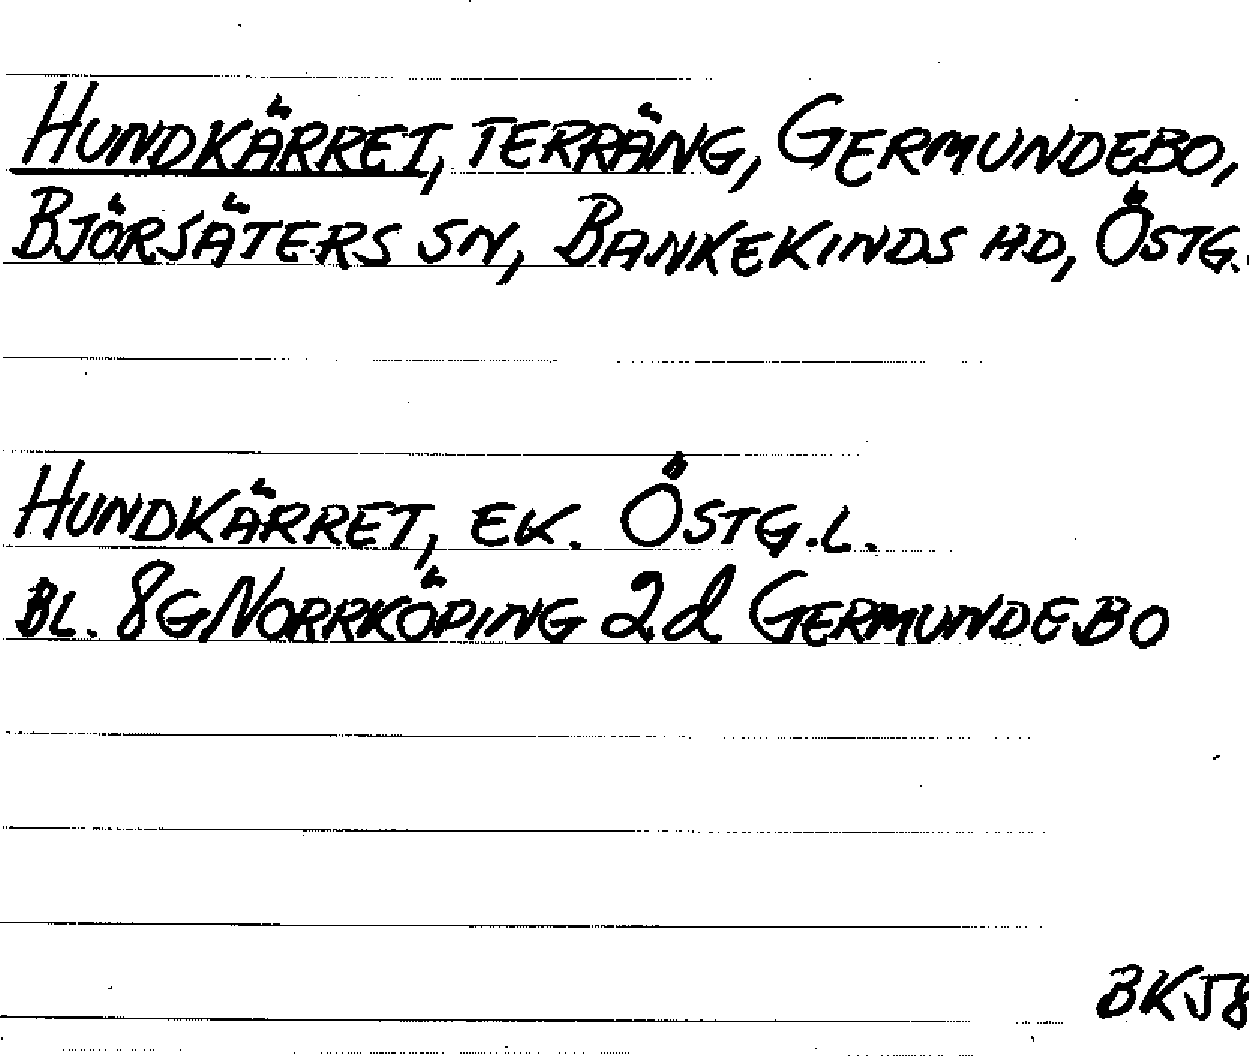 HUNDKÄRRET, TERRÄNG, GERMUNDEBO,
BJÖRSÄTERS SN, BANKEKINDS HD, ÖSTG.
HUNDKÄRRET, EK. ÖSTG.L.
BL. 8G NORRKÖPING 2d GERMUNDEBO